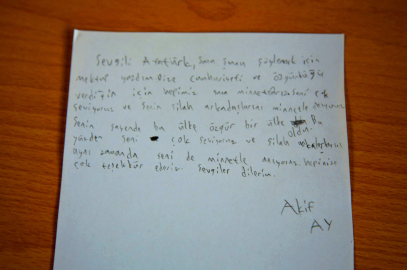 Sevgili Atatürk, Sana şunu söylemek için
mektup yazdım Bize cumhuriyeti ve özgürlüğü
verdiğin için hepimiz sana minnettarız seni çok
seviyoruz ve Senin silah arkadaşlarını minnetle anıyoruz
Senin sayende bu ülke özgür bir ülke oldu. Bu
yüzden seni çok seviyoruz ve silah arkadaşların
aynı zamanda seni de minnetle anıyoruz hepinize
çok teşekkür ederiz. Sevgiler dilerim.
Akif
AY